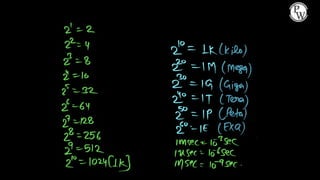 PW
2¹ = 2
2² = 4
2³ = 8
2⁴ = 16
2⁵ = 32
2⁶ = 64
2⁷ = 128
2⁸ = 256
2⁹ = 512
2¹⁰ = 1024 [1K]
2¹⁰ = 1K (Kilo)
2²⁰ = 1M (Mega)
2³⁰ = 1G (Giga)
2⁴⁰ = 1T (Tera)
2⁵⁰ = 1P (Peta)
2⁶⁰ = 1E (Exa)
1msec = 10⁻³sec
1μsec = 10⁻⁶sec
1nsec = 10⁻⁹sec